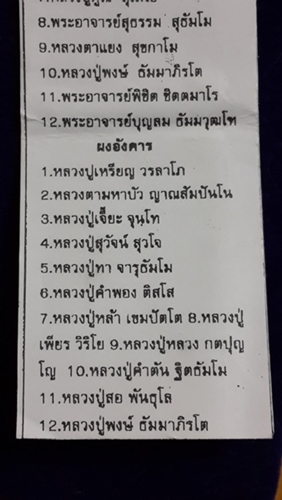 8.พระอาจารย์สุธรรม สุธัมโม
9.หลวงตาแยง สุขกาโม
10.หลวงปู่พงษ์ ธัมมาภิรโต
11.พระอาจารย์พิชิต ชิตตมาโร
12.พระอาจารย์บุญลม ธัมมวุฒโท
ผงอังคาร
1.หลวงปู่เหรียญ วรลาโภ
2.หลวงตามหาบัว ญาณสัมปันโน
3.หลวงปู่เจี๊ยะ จุนโท
4.หลวงปู่สุวัจน์ สุวโจ
5.หลวงปู่ทา จารุธัมโม
6.หลวงปู่คำพอง ติสโส
7.หลวงปู่หล้า เขมปัตโต 8.หลวงปู่
เพียร วิริโย 9.หลวงปู่หลวง กตปุญ
โญ 10.หลวงปู่คำตัน ฐิตธัมโม
11.หลวงปู่สอ พันธุโล
12.หลวงปู่พงษ์ ธัมมาภิรโต